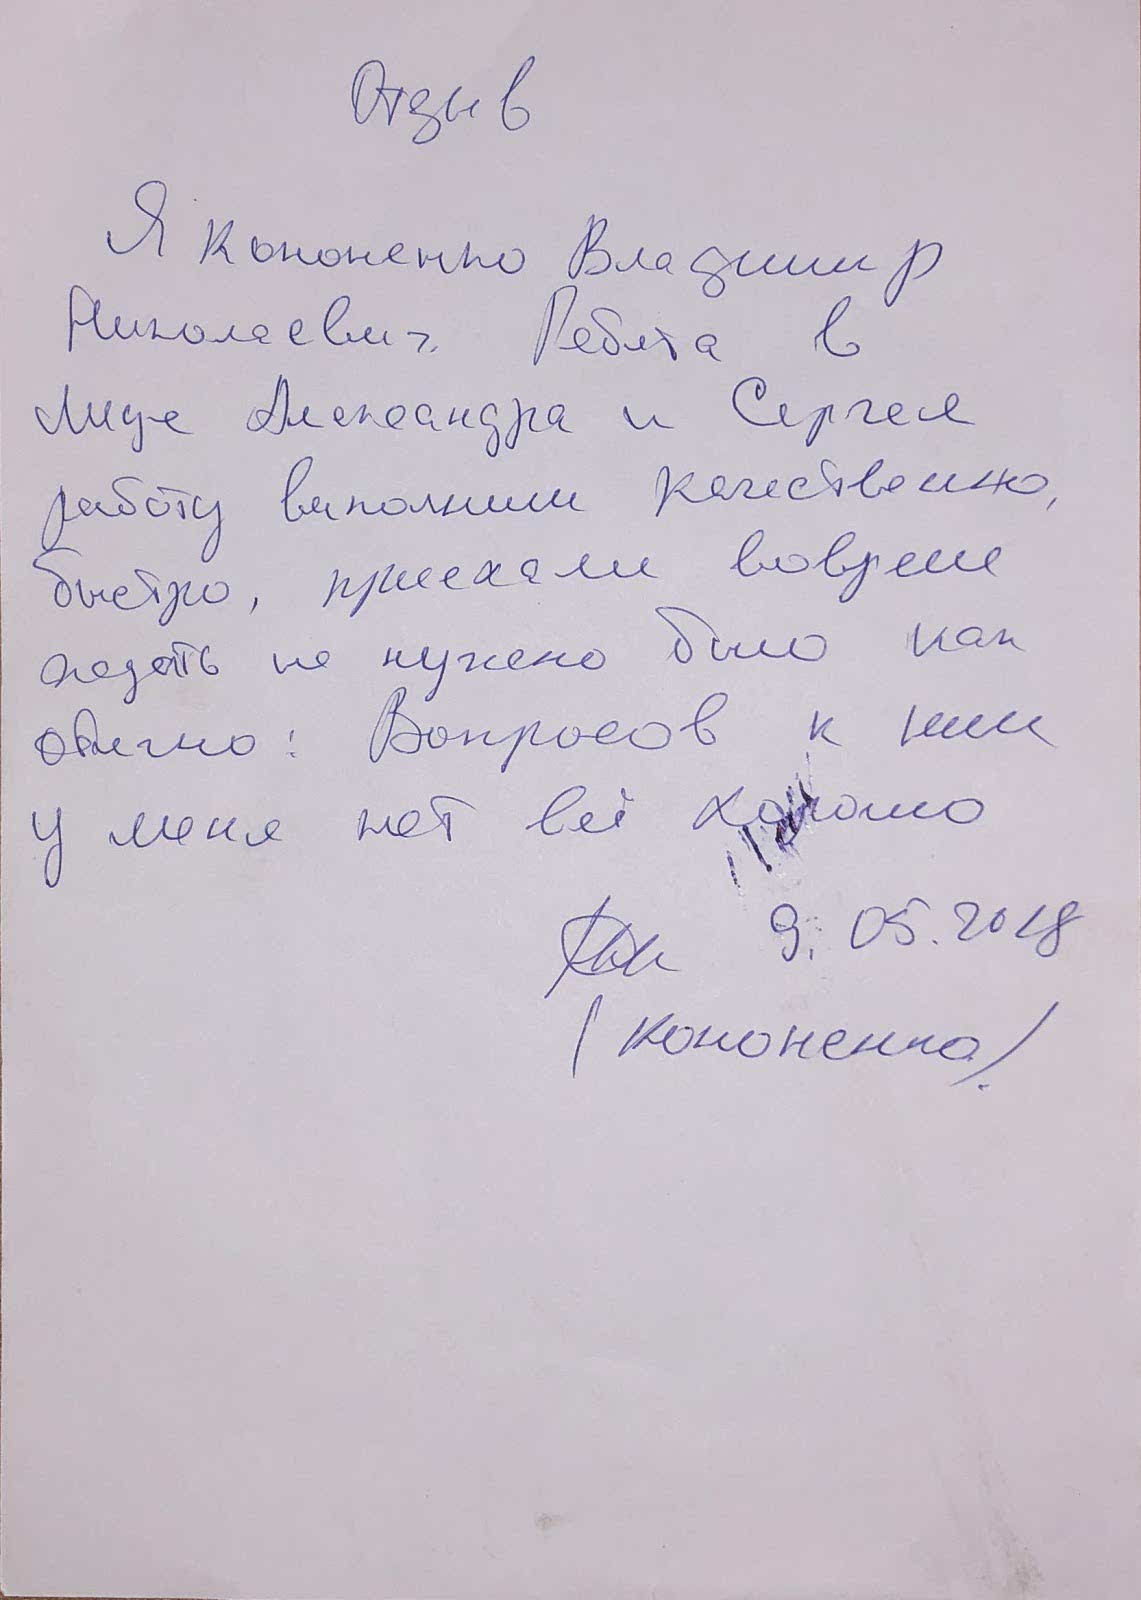 Отзыв
Я Кононенко Владимир
Николаевич. Ребята в
лице Александра и Сергея
работу выполнили качественно,
быстро, приехали вовреме
ждать не нужно было как
обычно! Вопросов к ним
у меня нет всё хорошо
9.05.2018
/Кононенко/